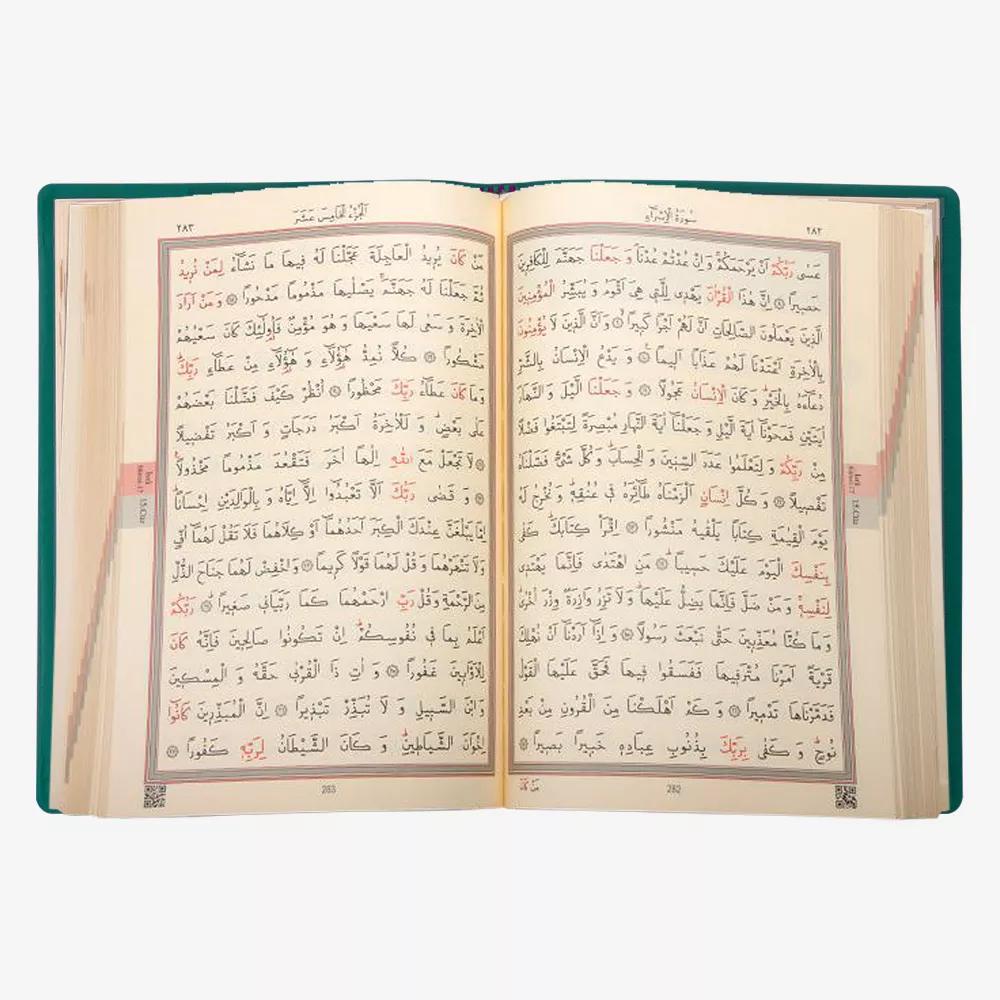 سُورَةُ الْاِسْرَاءِ
٢٨٢
عَسٰى رَبُّكُمْ اَنْ يَرْحَمَكُمْۚ وَاِنْ عُدْتُمْ عُدْنَاۢ وَجَعَلْنَا جَهَنَّمَ لِلْكَافِرٖينَ
حَصٖيرًا ﴿٨﴾ اِنَّ هٰذَا الْقُرْاٰنَ يَهْدٖى لِلَّتٖى هِىَ اَقْوَمُ وَ يُبَشِّرُ الْمُؤْمِنٖينَ
الَّذٖينَ يَعْمَلُونَ الصَّالِحَاتِ اَنَّ لَهُمْ اَجْرًا كَبٖيرًاۙ ﴿٩﴾ وَاَنَّ الَّذٖينَ لَا يُؤْمِنُونَ
بِالْاٰخِرَةِ اَعْتَدْنَا لَهُمْ عَذَابًا اَلٖيمًا ﴿١٠﴾ وَ يَدْعُ الْاِنْسَانُ بِالشَّرِّ
دُعَٓاءَهُ بِالْخَيْرِؕ وَ كَانَ الْاِنْسَانُ عَجُولًا ﴿١١﴾ وَ جَعَلْنَا الَّيْلَ وَ النَّهَارَ
اٰيَتَيْنِ فَمَحَوْنَٓا اٰيَةَ الَّيْلِ وَ جَعَلْنَٓا اٰيَةَ النَّهَارِ مُبْصِرَةً لِتَبْتَغُوا فَضْلًا
مِنْ رَبِّكُمْ وَ لِتَعْلَمُوا عَدَدَ السِّنٖينَ وَ الْحِسَابَؕ وَ كُلَّ شَیْءٍ فَصَّلْنَاهُ
تَفْصٖيلًا ﴿١٢﴾ وَ كُلَّ اِنْسَانٍ اَلْزَمْنَاهُ طَٓائِرَهُ فٖى عُنُقِهٖؕ وَ نُخْرِجُ لَهُ
يَوْمَ الْقِيٰمَةِ كِتَابًا يَلْقٰيهُ مَنْشُورًا ﴿١٣﴾ اِقْرَاْ كِتَابَكَؕ كَفٰى
بِنَفْسِكَ الْيَوْمَ عَلَيْكَ حَسٖيبًاؕ ﴿١٤﴾ مَنِ اهْتَدٰى فَاِنَّمَا يَهْتَدٖى
لِنَفْسِهٖۚ وَ مَنْ ضَلَّ فَاِنَّمَا يَضِلُّ عَلَيْهَاؕ وَ لَا تَزِرُ وَازِرَةٌ وِزْرَ اُخْرٰىؕ
وَ مَا كُنَّا مُعَذِّبٖينَ حَتّٰى نَبْعَثَ رَسُولًا ﴿١٥﴾ وَ اِذَٓا اَرَدْنَٓا اَنْ نُهْلِكَ
قَرْيَةً اَمَرْنَا مُتْرَفٖيهَا فَفَسَقُوا فٖيهَا فَحَقَّ عَلَيْهَا الْقَوْلُ
فَدَمَّرْنَاهَا تَدْمٖيرًا ﴿١٦﴾ وَ كَمْ اَهْلَكْنَا مِنَ الْقُرُونِ مِنْ بَعْدِ
نُوحٍؕ وَ كَفٰى بِرَبِّكَ بِذُنُوبِ عِبَادِهٖ خَبٖيرًا بَصٖيرًا ﴿١٧﴾
مَنْ كَانَ
282
15.Cüz
اَلْجُزْءُ الْخَامِسَ عَشَرَ
٢٨٣
مَنْ كَانَ يُرٖيدُ الْعَاجِلَةَ عَجَّلْنَا لَهُ فٖيهَا مَا نَشَٓاءُ لِمَنْ نُرٖيدُ
ثُمَّ جَعَلْنَا لَهُ جَهَنَّمَۚ يَصْلٰيهَا مَذْمُومًا مَدْحُورًا ﴿١٨﴾ وَ مَنْ اَرَادَ
الْاٰخِرَةَ وَ سَعٰى لَهَا سَعْيَهَا وَ هُوَ مُؤْمِنٌ فَاُو۬لٰٓئِكَ كَانَ سَعْيُهُمْ
مَشْكُورًا ﴿١٩﴾ كُلًّا نُمِدُّ هٰٓؤُ۬لَٓاءِ وَ هٰٓؤُ۬لَٓاءِ مِنْ عَطَٓاءِ رَبِّكَؕ
وَمَا كَانَ عَطَٓاءُ رَبِّكَ مَحْظُورًا ﴿٢٠﴾ اُنْظُرْ كَيْفَ فَضَّلْنَا بَعْضَهُمْ
عَلٰى بَعْضٍؕ وَ لَلْاٰخِرَةُ اَكْبَرُ دَرَجَاتٍ وَ اَكْبَرُ تَفْضٖيلًا
﴿٢١﴾ لَا تَجْعَلْ مَعَ اللّٰهِ اِلٰهًا اٰخَرَ فَتَقْعُدَ مَذْمُومًا مَخْذُولًا
﴿٢٢﴾ وَ قَضٰى رَبُّكَ اَلَّا تَعْبُدُٓوا اِلَّٓا اِيَّاهُ وَ بِالْوَالِدَيْنِ اِحْسَانًاؕ
اِمَّا يَبْلُغَنَّ عِنْدَكَ الْكِبَرَ اَحَدُهُمَٓا اَوْ كِلَاهُمَا فَلَا تَقُلْ لَهُمَٓا اُفٍّ
وَلَا تَنْهَرْهُمَا وَ قُلْ لَهُمَا قَوْلًا كَرٖيمًا ﴿٢٣﴾ وَاخْفِضْ لَهُمَا جَنَاحَ الذُّلِّ
مِنَ الرَّحْمَةِ وَ قُلْ رَبِّ ارْحَمْهُمَا كَمَا رَبَّيَانٖى صَغٖيرًاؕ ﴿٢٤﴾ رَبُّكُمْ
اَعْلَمُ بِمَا فٖى نُفُوسِكُمْؕ اِنْ تَكُونُوا صَالِحٖينَ فَاِنَّهُ كَانَ
لِلْاَوَّابٖينَ غَفُورًا ﴿٢٥﴾ وَ اٰتِ ذَا الْقُرْبٰى حَقَّهُ وَ الْمِسْكٖينَ
وَابْنَ السَّبٖيلِ وَ لَا تُبَذِّرْ تَبْذٖيرًا ﴿٢٦﴾ اِنَّ الْمُبَذِّرٖينَ كَانُٓوا
اِخْوَانَ الشَّيَاطٖينِؕ وَ كَانَ الشَّيْطَانُ لِرَبِّهٖ كَفُورًا ﴿٢٧﴾
283
15.Cüz